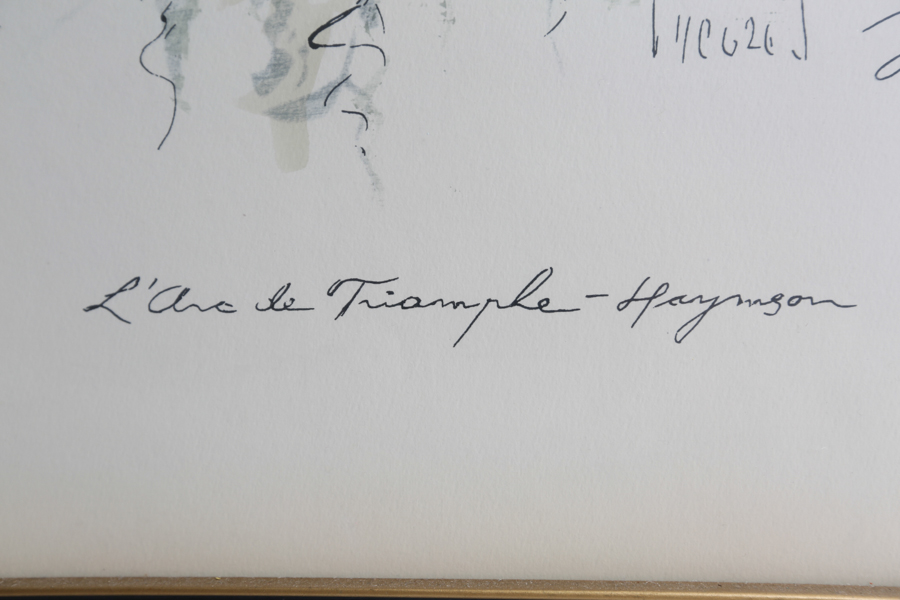 L'Arc de Triomphe - Haymson